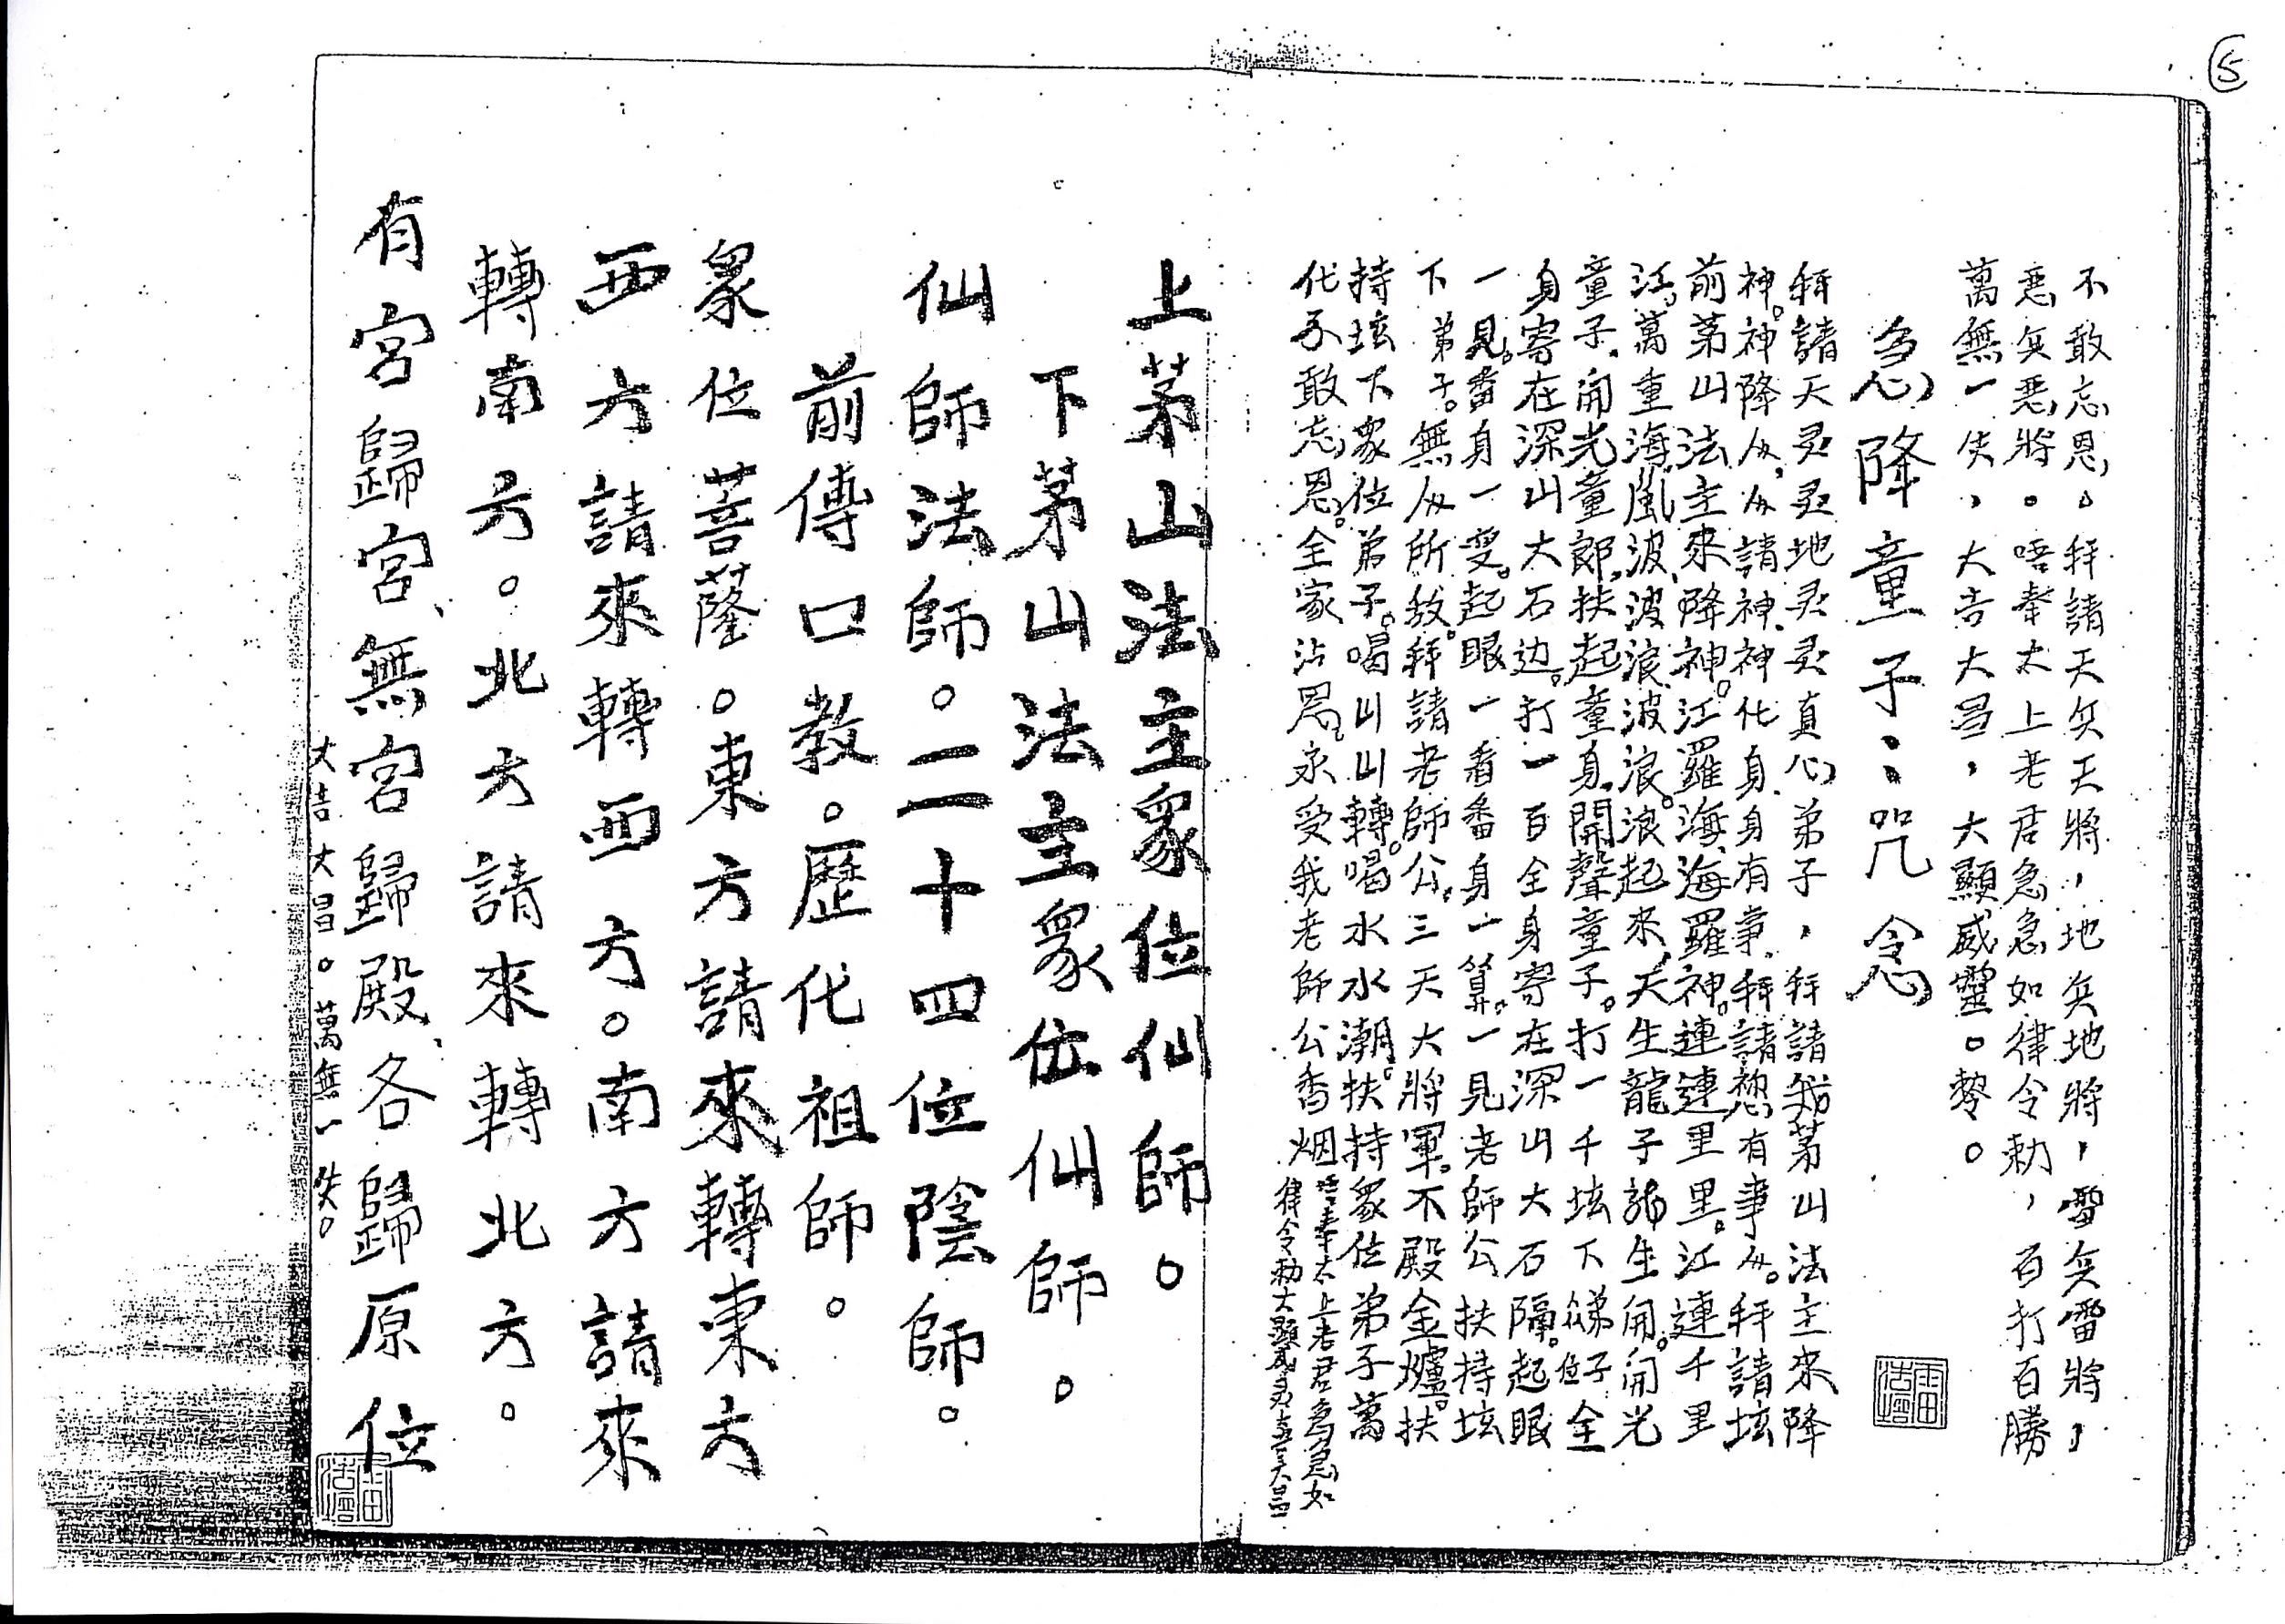 ⑤
不敢忘恩。拜請天兵天將，地兵地將，雷兵雷將，
惡兵惡將。唔奉太上老君急急如律令勅，百打百勝
萬無一失，大吉大昌，大顯威靈。黎。
急降童子：咒念
拜請天灵灵地灵灵真心弟子，拜請 茅山法主來降
神。神降从，从請神、神化身、身有事、拜請 有事从。拜請坛
前茅山法主來降神。江羅海、海羅神。連連里里。江連千里
江。萬重海風波、波浪、波浪。浪起來、天生龍子 生開。開光
童子、開光童郎、扶起童身、開聲童子。打一千坛下 弟子全
身寄在深山大石边。打一百全身寄在深山大石隔。起眼
一見。番身一变。起眼一看番身一算。一見老師公扶持坛
下弟子。無从所教。拜請老師公。三天大將軍。不殿金爐。扶
持坛下眾位弟子。喝山山轉。喝水水潮。扶持眾位弟子萬
代不敢忘恩。全家沾恩。永受我老師公香烟
唔奉太上老君急急如
律令勅大顯威 大吉大昌
上茅山法主眾位仙師。
下茅山法主眾位仙師。
仙師法師。二十四位陰師。
前傳口教。歷代祖師。
眾位菩薩。東方請來轉東方
西方請來轉西方。南方請來
轉南方。北方請來轉北方。
有宮歸宮、無宮歸殿、各歸原位
大吉大昌。萬無一失。